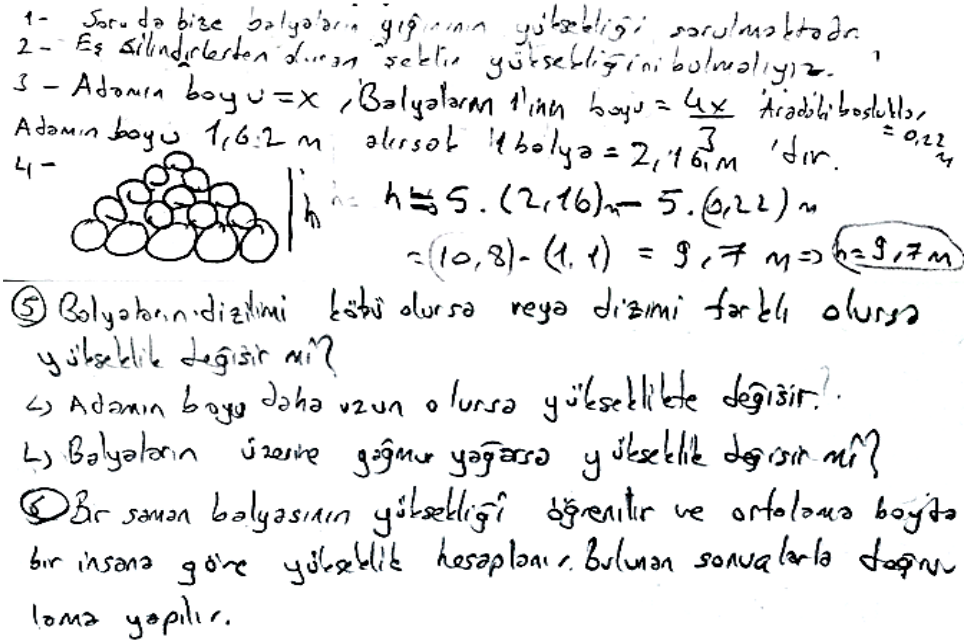 1- Soruda bize balyaların yığınının yüksekliği sorulmaktadır.
2- Eş silindirlerden oluşan şeklin yüksekliğini bulmalıyız.
3- Adamın boyu = x, Balyaların 1'inin boyu = 4x/3 Aradaki boşluklar = 0,22 m
Adamın boyu 1,62 m alırsak 1 balya = 2,16 m 'dir.
4- h h = 5.(2,16)m - 5.(0,22) m
= (10,8) - (1,1) = 9,7 m => h = 9,7 m
5 Balyaların dizilimi kötü olursa veya dizimi farklı olursa
yükseklik değişir mi?
↳ Adamın boyu daha uzun olursa yükseklikte değişir?
↳ Balyaların üzerine yağmur yağarsa yükseklik değişir mi?
6 Bir saman balyasının yüksekliği öğrenilir ve ortalama boyda
bir insana göre yükseklik hesaplanır. Bulunan sonuçlarla doğru
lama yapılır.